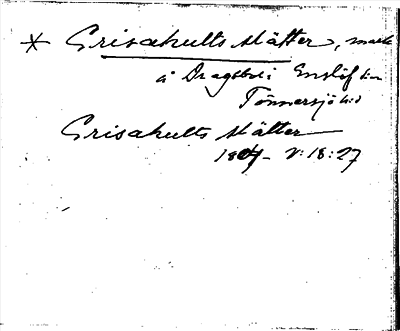 * Grisahults slätter, mark
å Dragsbol i Enslöf sn
Tönnersjö hd
Grisahults slätter
18 V: 18: 27